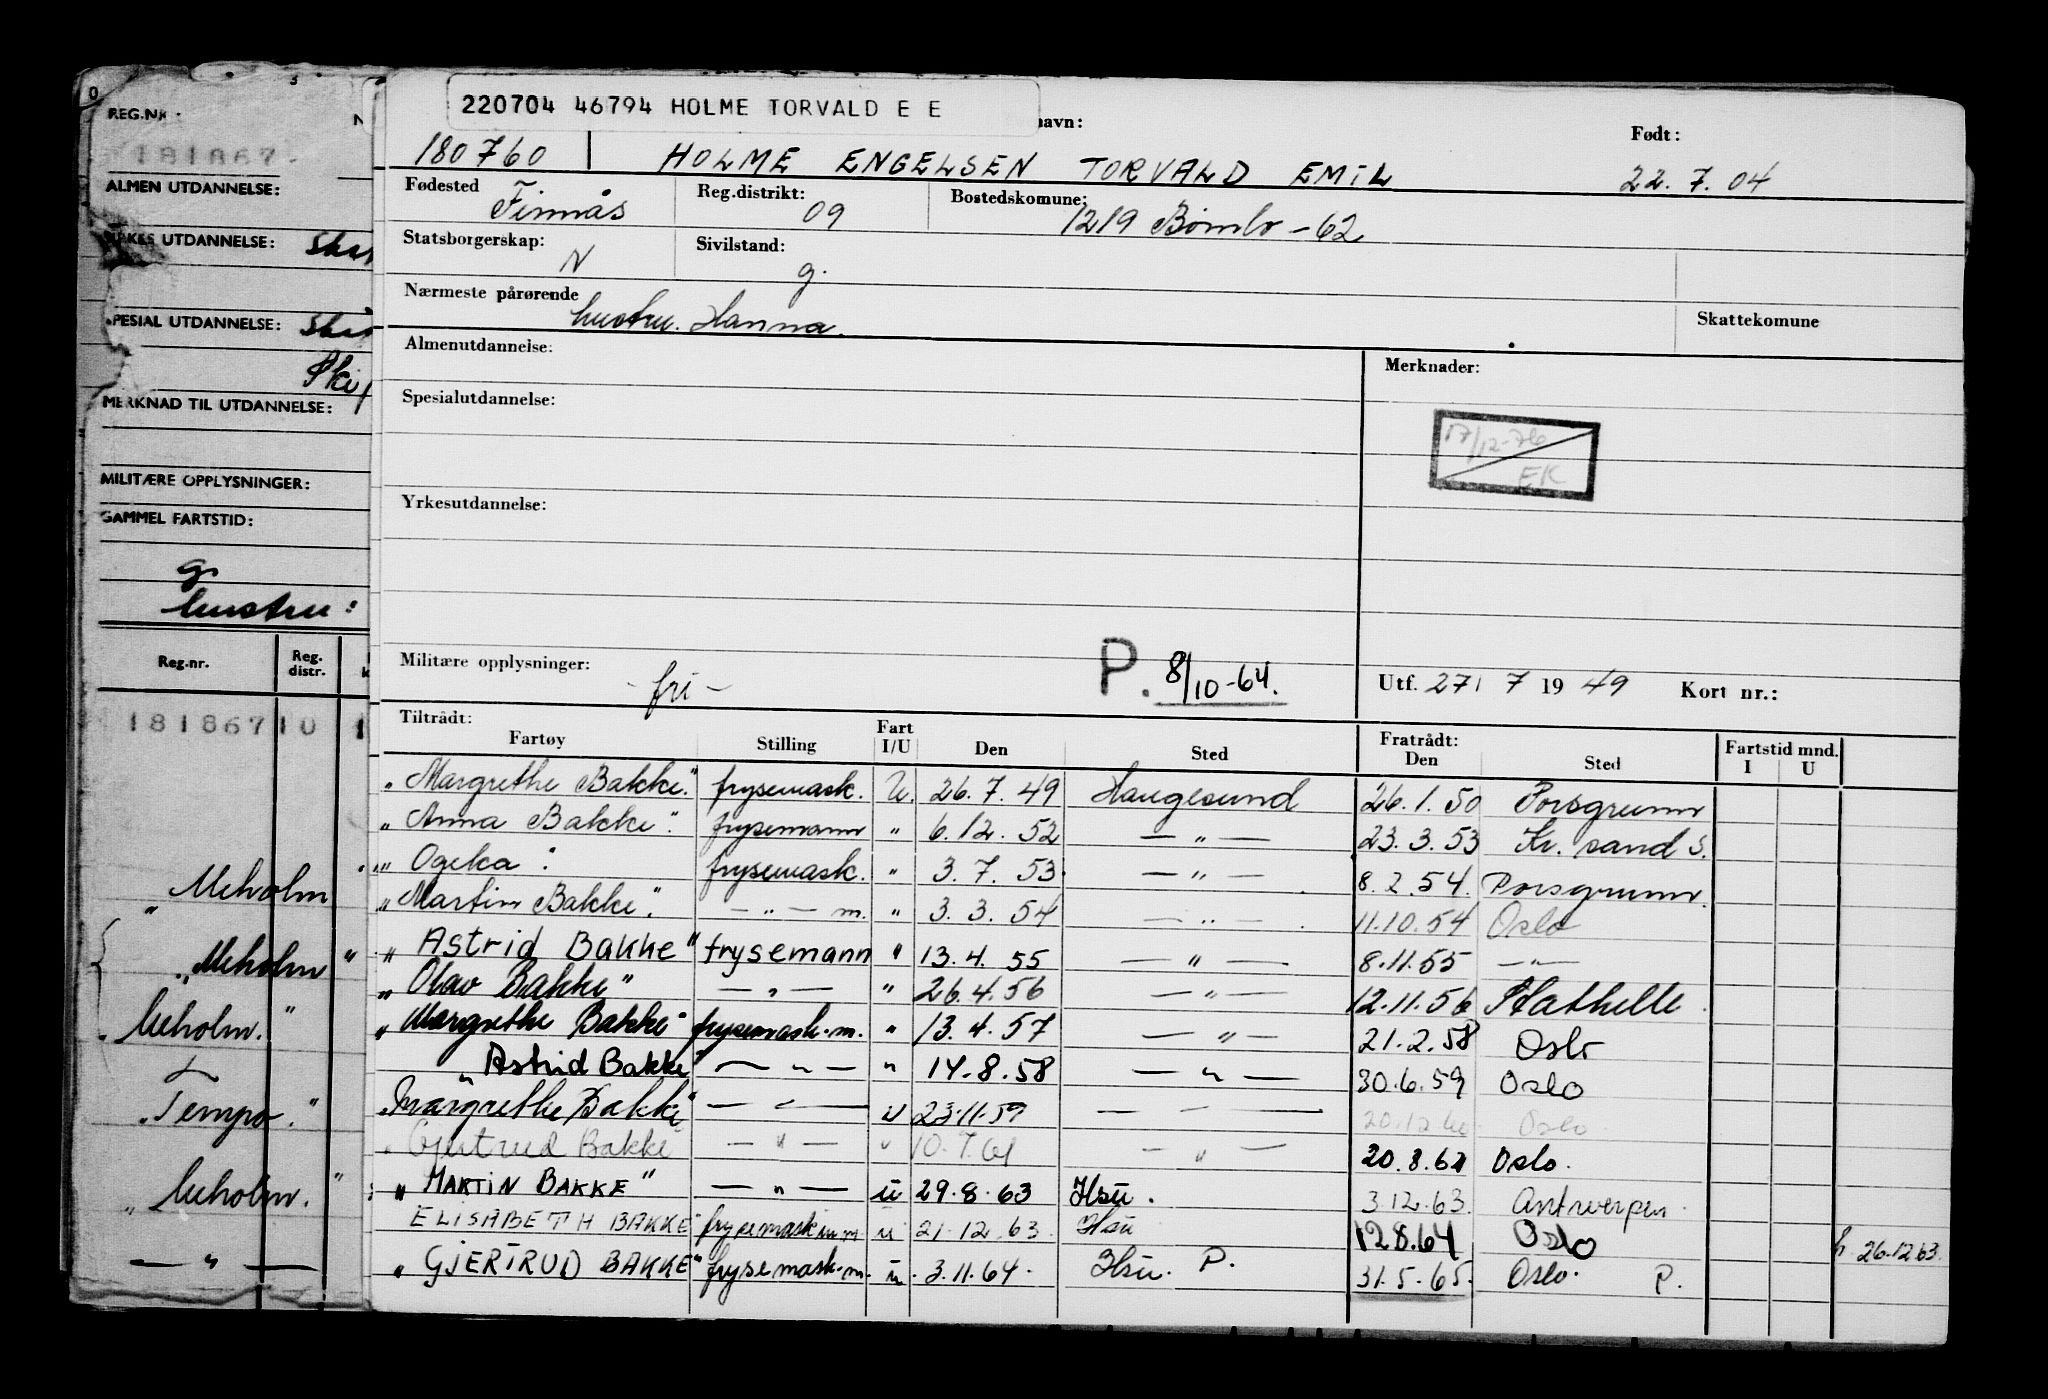 220704 46794 HOLME TORVALD E E
navn:
Født:
180760 HOLME ENGELSEN TORVALD EMIL 22.7.04
Fødested Finnås Reg.distrikt: 09 Bostedskomune: 1219 Bømlo - 62
Statsborgerskap: N Sivilstand: g.
Nærmeste pårørende hustru. Hanna. Skattekomune
Almenutdannelse: Merknader:
Spesialutdannelse:
17/12-76
EK
Yrkesutdannelse:
Militære opplysninger: - fri - P. 8/10-64. Utf. 27/ 7 19 49 Kort nr.:
Tiltrådt: Fratrådt: Fartstid mnd.
Fartøy Stilling Fart I/U Den Sted Den Sted I U
"Margrethe Bakke" frysemask. U. 26.7.49 Haugesund 26.1.50 Porsgrunn
"Anna Bakke" frysemann " 6.12.52 — " — 23.3.53 Kr. sand S.
"Ogeka" frysemask. " 3.7.53 — " — 8.2.54. Porsgrunn.
"Martin Bakke" — " — m. " 3.3.54 — " — 11.10.54 Oslo
"Astrid Bakke" frysemann " 13.4.55 — " — 8.11.55 — " —
"Olav Bakke" — " — " 26.4.56 — " — 12.11.56 Stathelle
"Margrethe Bakke" frysemask.m. " 13.4.57 — " — 21.2.58 Oslo
"Astrid Bakke" — " — " 14.8.58 — " — 30.6.59 Oslo
"Margrethe Bakke" — " — u 23.11.59 — " — 20.12.60 Oslo
"Gjertrud Bakke" — " — " 10.7.61 — " — 20.8.62 Oslo.
"MARTIN BAKKE" — " — u 29.8.63 Hsu. 3.12.63. Antwerpen
ELISABETH BAKKE" frysemaskin m u 21.12.63. Hsu 12.8.64 Oslo h. 26.12.63.
"GJERTRUD BAKKE" frysemask.m. u. 3.11.64. Hsu. P. 31.5.65. Oslo. P.
REG.NR.
181867.
ALMEN UTDANNELSE:
UTDANNELSE:
SPESIAL UTDANNELSE:
MERKNAD TIL UTDANNELSE:
MILITÆRE OPPLYSNINGER:
GAMMEL FARTSTID:
g
hustru:
Reg.nr. Reg. distr.
181867 10
"Meholm
"Meholm "
"Meholm."
"Tempo."
"Meholm."
— " —